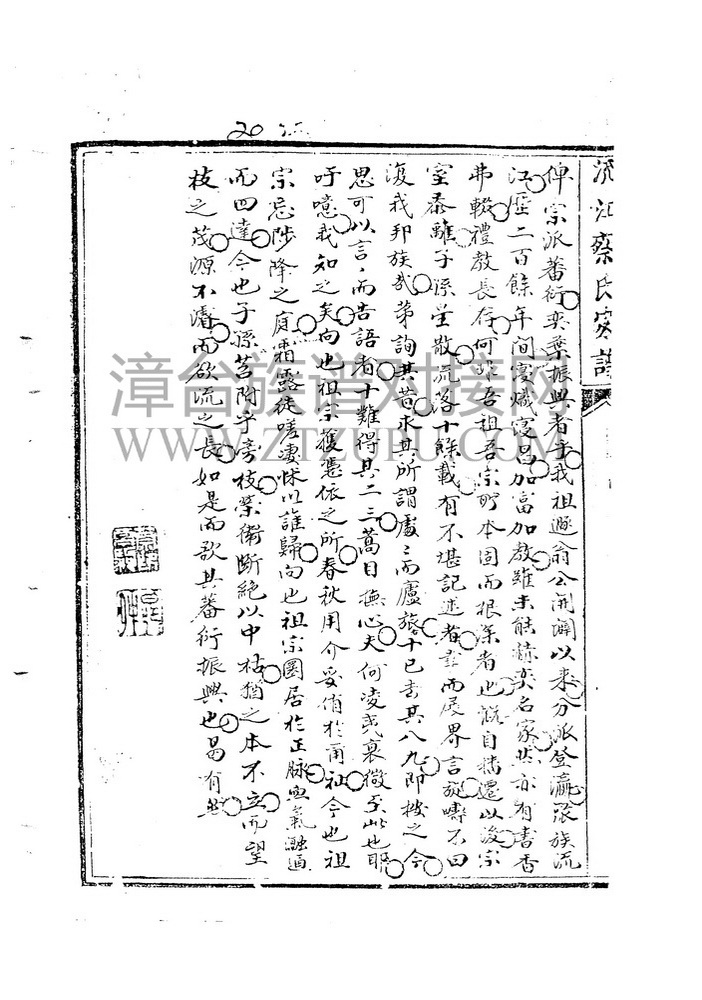 20
流江蔡氏家譜
俾宗派蕃衍奕葉振興者乎我祖遜翁公開闢以來分派登瀛聚族流
江歷二百餘年間寖熾寖昌加富加教雖未能赫奕名家然亦有書香
弗輟禮教長存何非吾祖吾宗所本固而根深者也溉自播遷以後宗
室泰離子孫星散流落十餘載有不堪記述者幸而展界言旋疇不曰
復我邦族哉第詢其昔求其所謂處處而廬旅者十已喪其八九即按之今
思可以言言而告語者十難得其二三蒿目撫心夫何凌夷衰微至此也耶
吁噫我知之矣向也祖宗獲憑依之所春秋用介妥侑於甭祉今也祖
宗忌陟降之庭霜露徒嗟凄愀以誰歸向也祖宗圈居於正脉與氣融通
而四達今也子孫苕附乎旁枝榮衛斷絕以中枯猶之本不立而望
枝之茂源不濬而欲流之長如是而欲其蕃衍振興也曷有此
漳台族谱对接网
WWW.ZTZUPU.COM